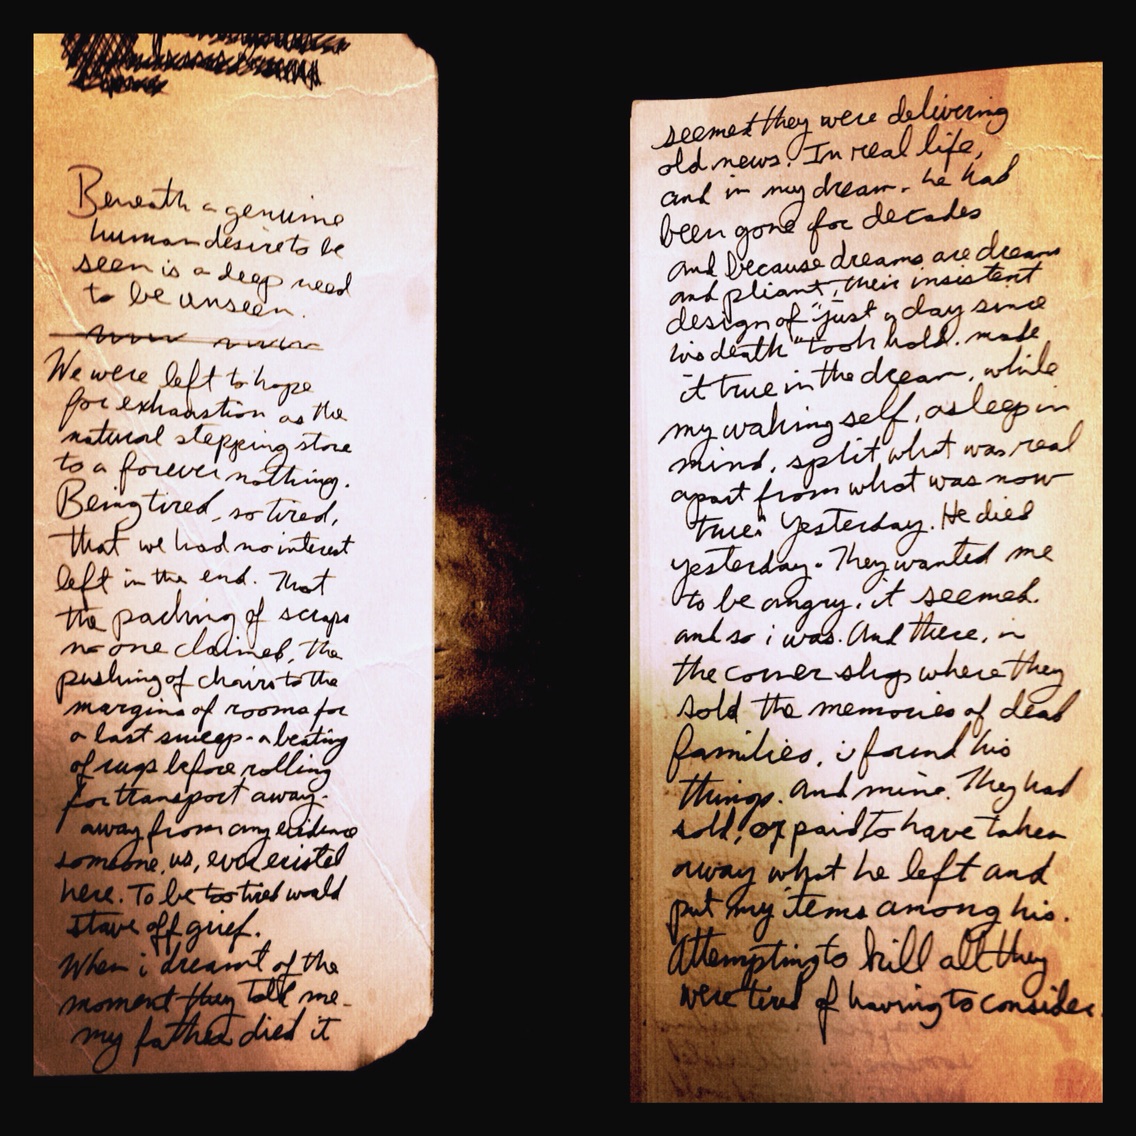 Beneath a genuine
human desire to be
seen is a deep need
to be unseen.
We were left to hope
for exhaustion as the
natural stepping stone
to a forever nothing.
Being tired, so tired,
that we had no interest
left in the end. That
the packing of scraps
no one claimed, the
pushing of chairs to the
margins of rooms for
a last sweep - a beating
of rugs before rolling
for transport away.
away from any evidence
someone, us, ever existed
here. To be too tired would
stave off grief.
When i dreamt of the
moment they told me -
my father died it
seemed they were delivering
old news. In real life,
and in my dream. he had
been gone for decades
and because dreams are dreams
and pliant, their insistent
design of "just a day since
his death" took hold. made
it true in the dream, while
my waking self, asleep in
mind, split what was real
apart from what was now
"true." Yesterday. He died
yesterday. They wanted me
to be angry, it seemed.
and so i was. And there, in
the corner shop where they
sold the memories of dead
families, i found his
things. And mine. They had
sold, or paid to have taken
away what he left and
put my items among his.
Attempting to kill all they
were tired of having to consider.